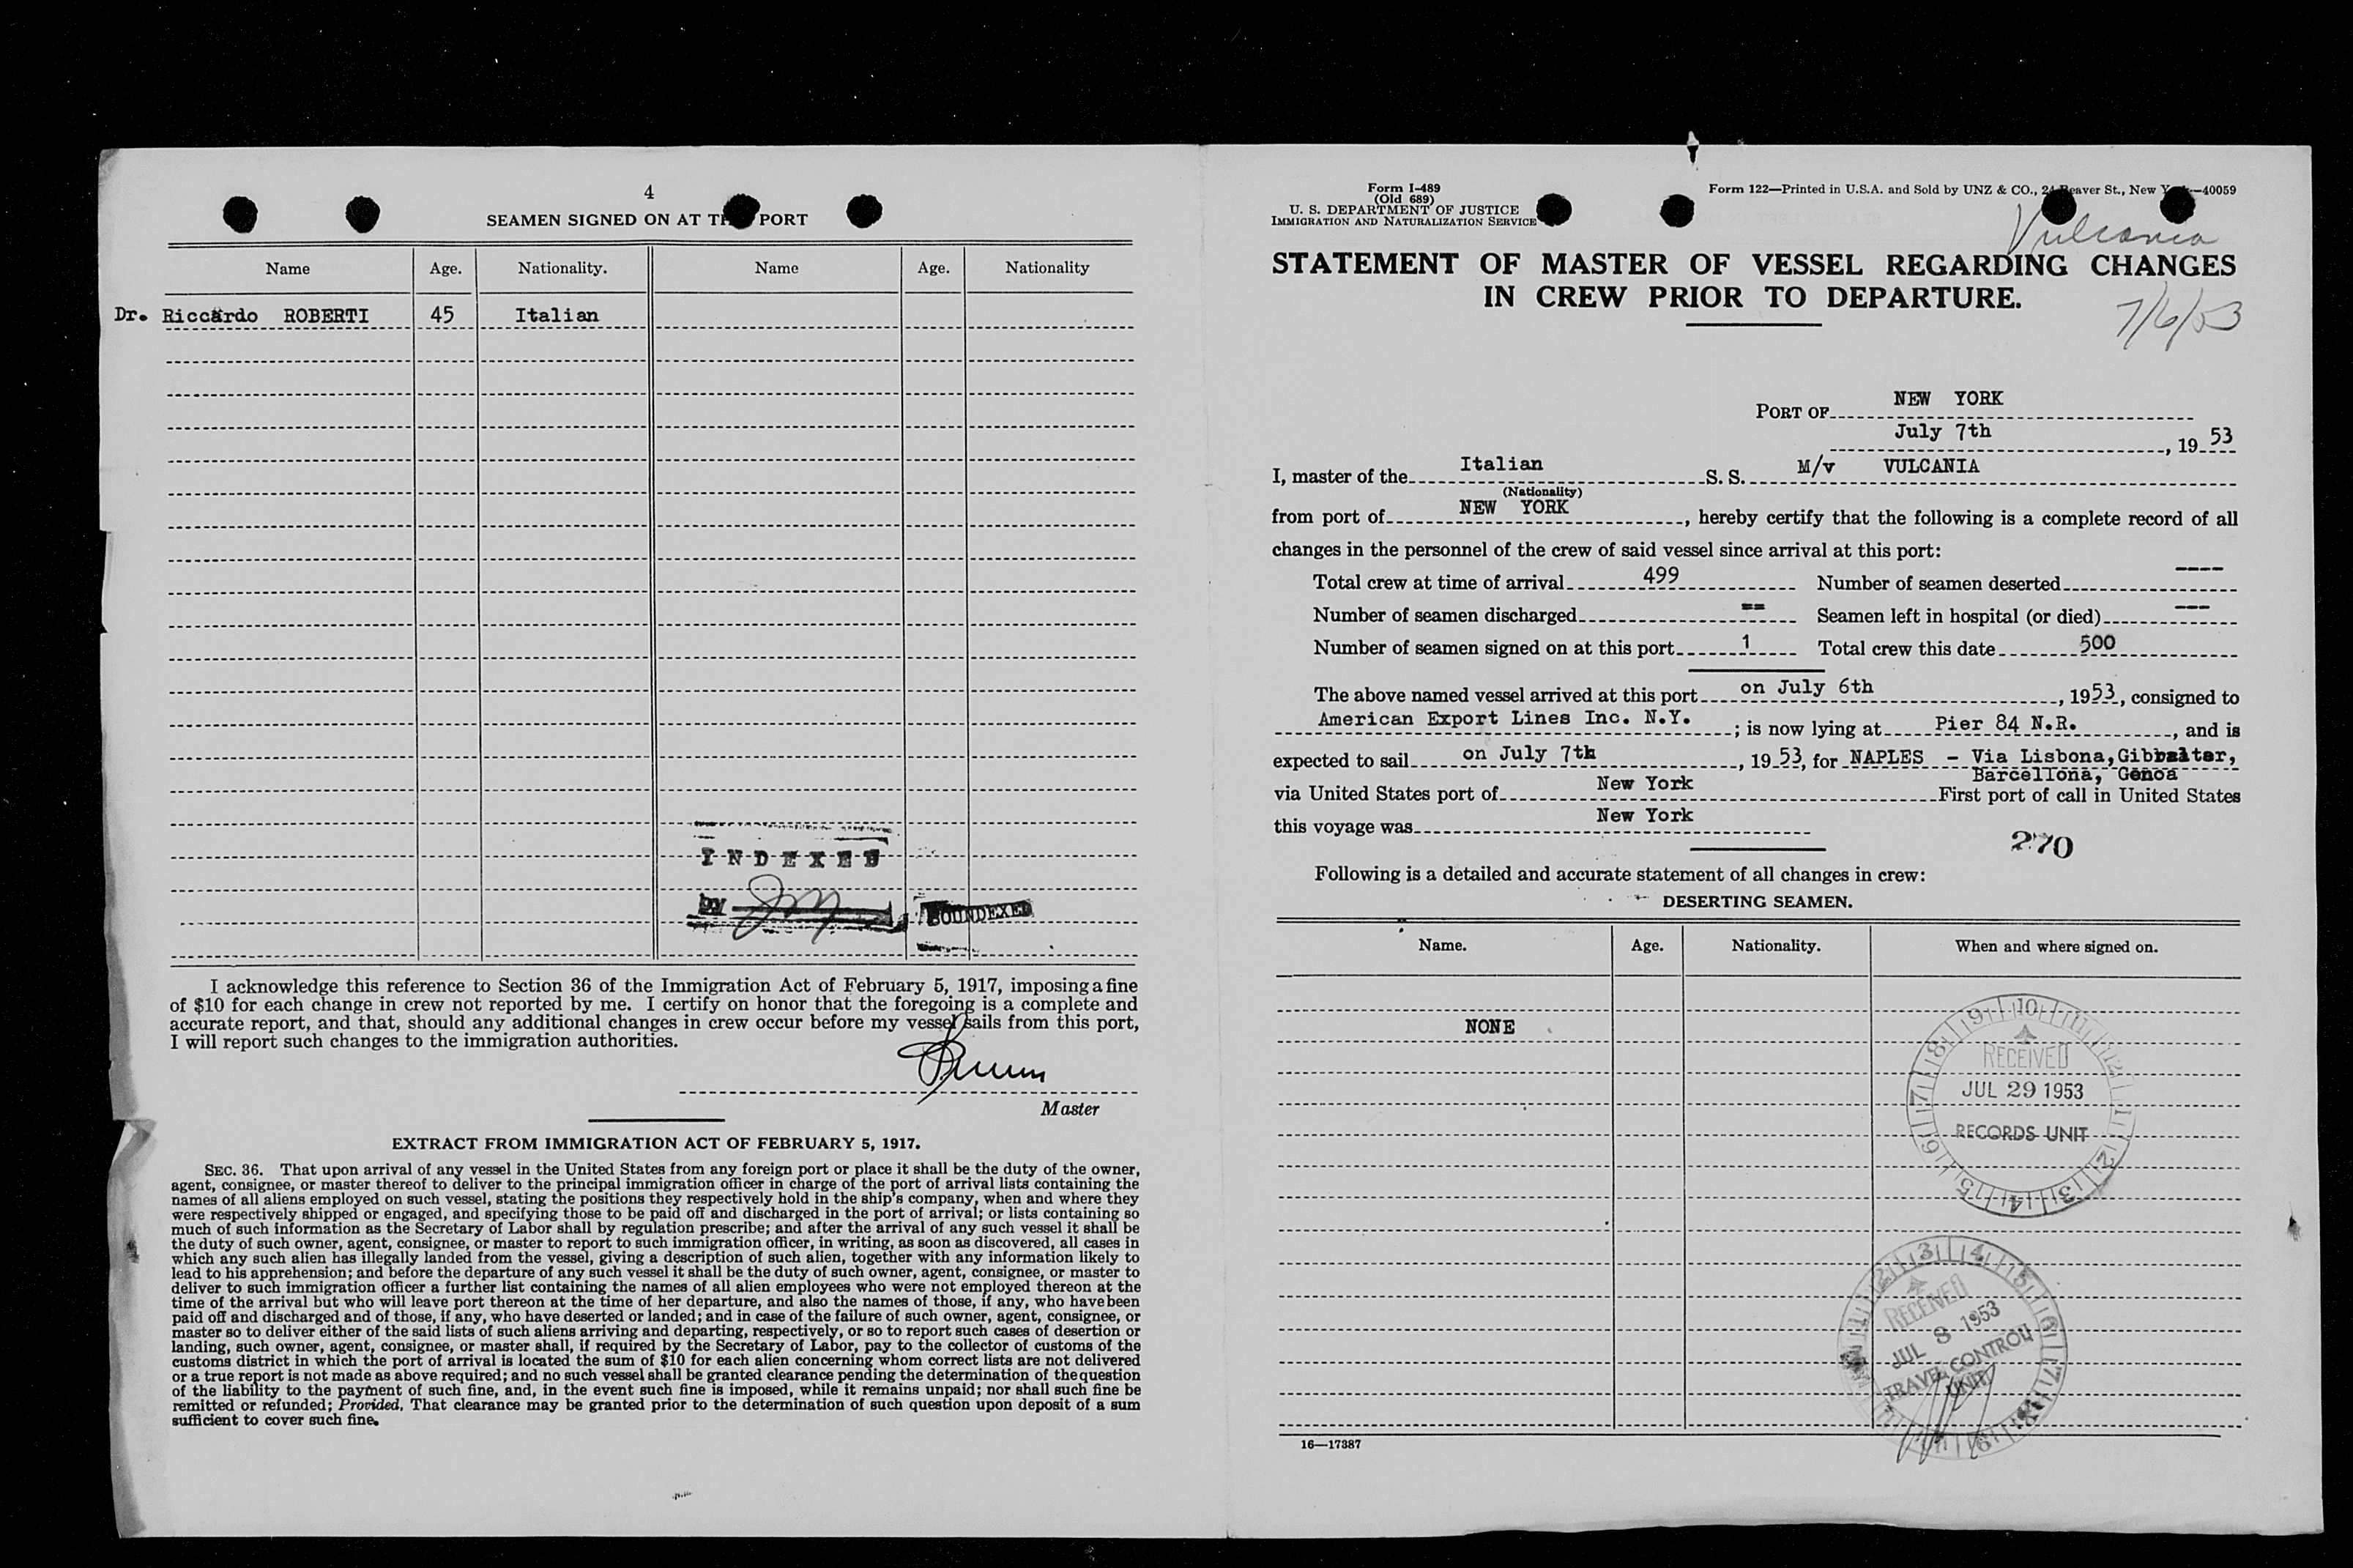 4
SEAMEN SIGNED ON AT PORT
Name Age. Nationality. Name Age. Nationality
Dr. Riccardo ROBERTI 45 Italian
INDEXED
BY
I acknowledge this reference to Section 36 of the Immigration Act of February 5, 1917, imposing a fine
of $10 for each change in crew not reported by me. I certify on honor that the foregoing is a complete and
accurate report, and that, should any additional changes in crew occur before my vessel sails from this port,
I will report such changes to the immigration authorities.
Master
EXTRACT FROM IMMIGRATION ACT OF FEBRUARY 5, 1917.
SEC. 36. That upon arrival of any vessel in the United States from any foreign port or place it shall be the duty of the owner,
agent, consignee, or master thereof to deliver to the principal immigration officer in charge of the port of arrival lists containing the
names of all aliens employed on such vessel, stating the positions they respectively hold in the ship's company, when and where they
were respectively shipped or engaged, and specifying those to be paid off and discharged in the port of arrival; or lists containing so
much of such information as the Secretary of Labor shall by regulation prescribe; and after the arrival of any such vessel it shall be
the duty of such owner, agent, consignee, or master to report to such immigration officer, in writing, as soon as discovered, all cases in
which any such alien has illegally landed from the vessel, giving a description of such alien, together with any information likely to
lead to his apprehension; and before the departure of any such vessel it shall be the duty of such owner, agent, consignee, or master to
deliver to such immigration officer a further list containing the names of all alien employees who were not employed thereon at the
time of the arrival but who will leave port thereon at the time of her departure, and also the names of those, if any, who have been
paid off and discharged and of those, if any, who have deserted or landed; and in case of the failure of such owner, agent, consignee, or
master so to deliver either of the said lists of such aliens arriving and departing, respectively, or so to report such cases of desertion or
landing, such owner, agent, consignee, or master shall, if required by the Secretary of Labor, pay to the collector of customs of the
customs district in which the port of arrival is located the sum of $10 for each alien concerning whom correct lists are not delivered
or a true report is not made as above required; and no such vessel shall be granted clearance pending the determination of the question
of the liability to the payment of such fine, and, in the event such fine is imposed, while it remains unpaid; nor shall such fine be
remitted or refunded; Provided, That clearance may be granted prior to the determination of such question upon deposit of a sum
sufficient to cover such fine.
Form I-489
(Old 689)
U. S. DEPARTMENT OF JUSTICE
IMMIGRATION AND NATURALIZATION SERVICE
Form 122—Printed in U.S.A. and Sold by UNZ & CO., 24 Beaver St., New York—40059
Vulcania
STATEMENT OF MASTER OF VESSEL REGARDING CHANGES
IN CREW PRIOR TO DEPARTURE.
7/6/53
PORT OF NEW YORK
July 7th, 1953
I, master of the Italian S. S. M/v VULCANIA
(Nationality)
from port of NEW YORK, hereby certify that the following is a complete record of all
changes in the personnel of the crew of said vessel since arrival at this port:
Total crew at time of arrival 499 Number of seamen deserted ----
Number of seamen discharged == Seamen left in hospital (or died) ---
Number of seamen signed on at this port 1 Total crew this date 500
The above named vessel arrived at this port on July 6th, 1953, consigned to
American Export Lines Inc. N.Y.; is now lying at Pier 84 N.R., and is
expected to sail on July 7th, 1953, for NAPLES - Via Lisbona, Gibraltar,
Barcellona, Genoa
via United States port of New York First port of call in United States
this voyage was New York
270
Following is a detailed and accurate statement of all changes in crew:
DESERTING SEAMEN.
Name. Age. Nationality. When and where signed on.
NONE
RECEIVED
JUL 29 1953
RECORDS UNIT
RECEIVED
JUL 8 1953
TRAVEL CONTROL
UNIT
16—17387